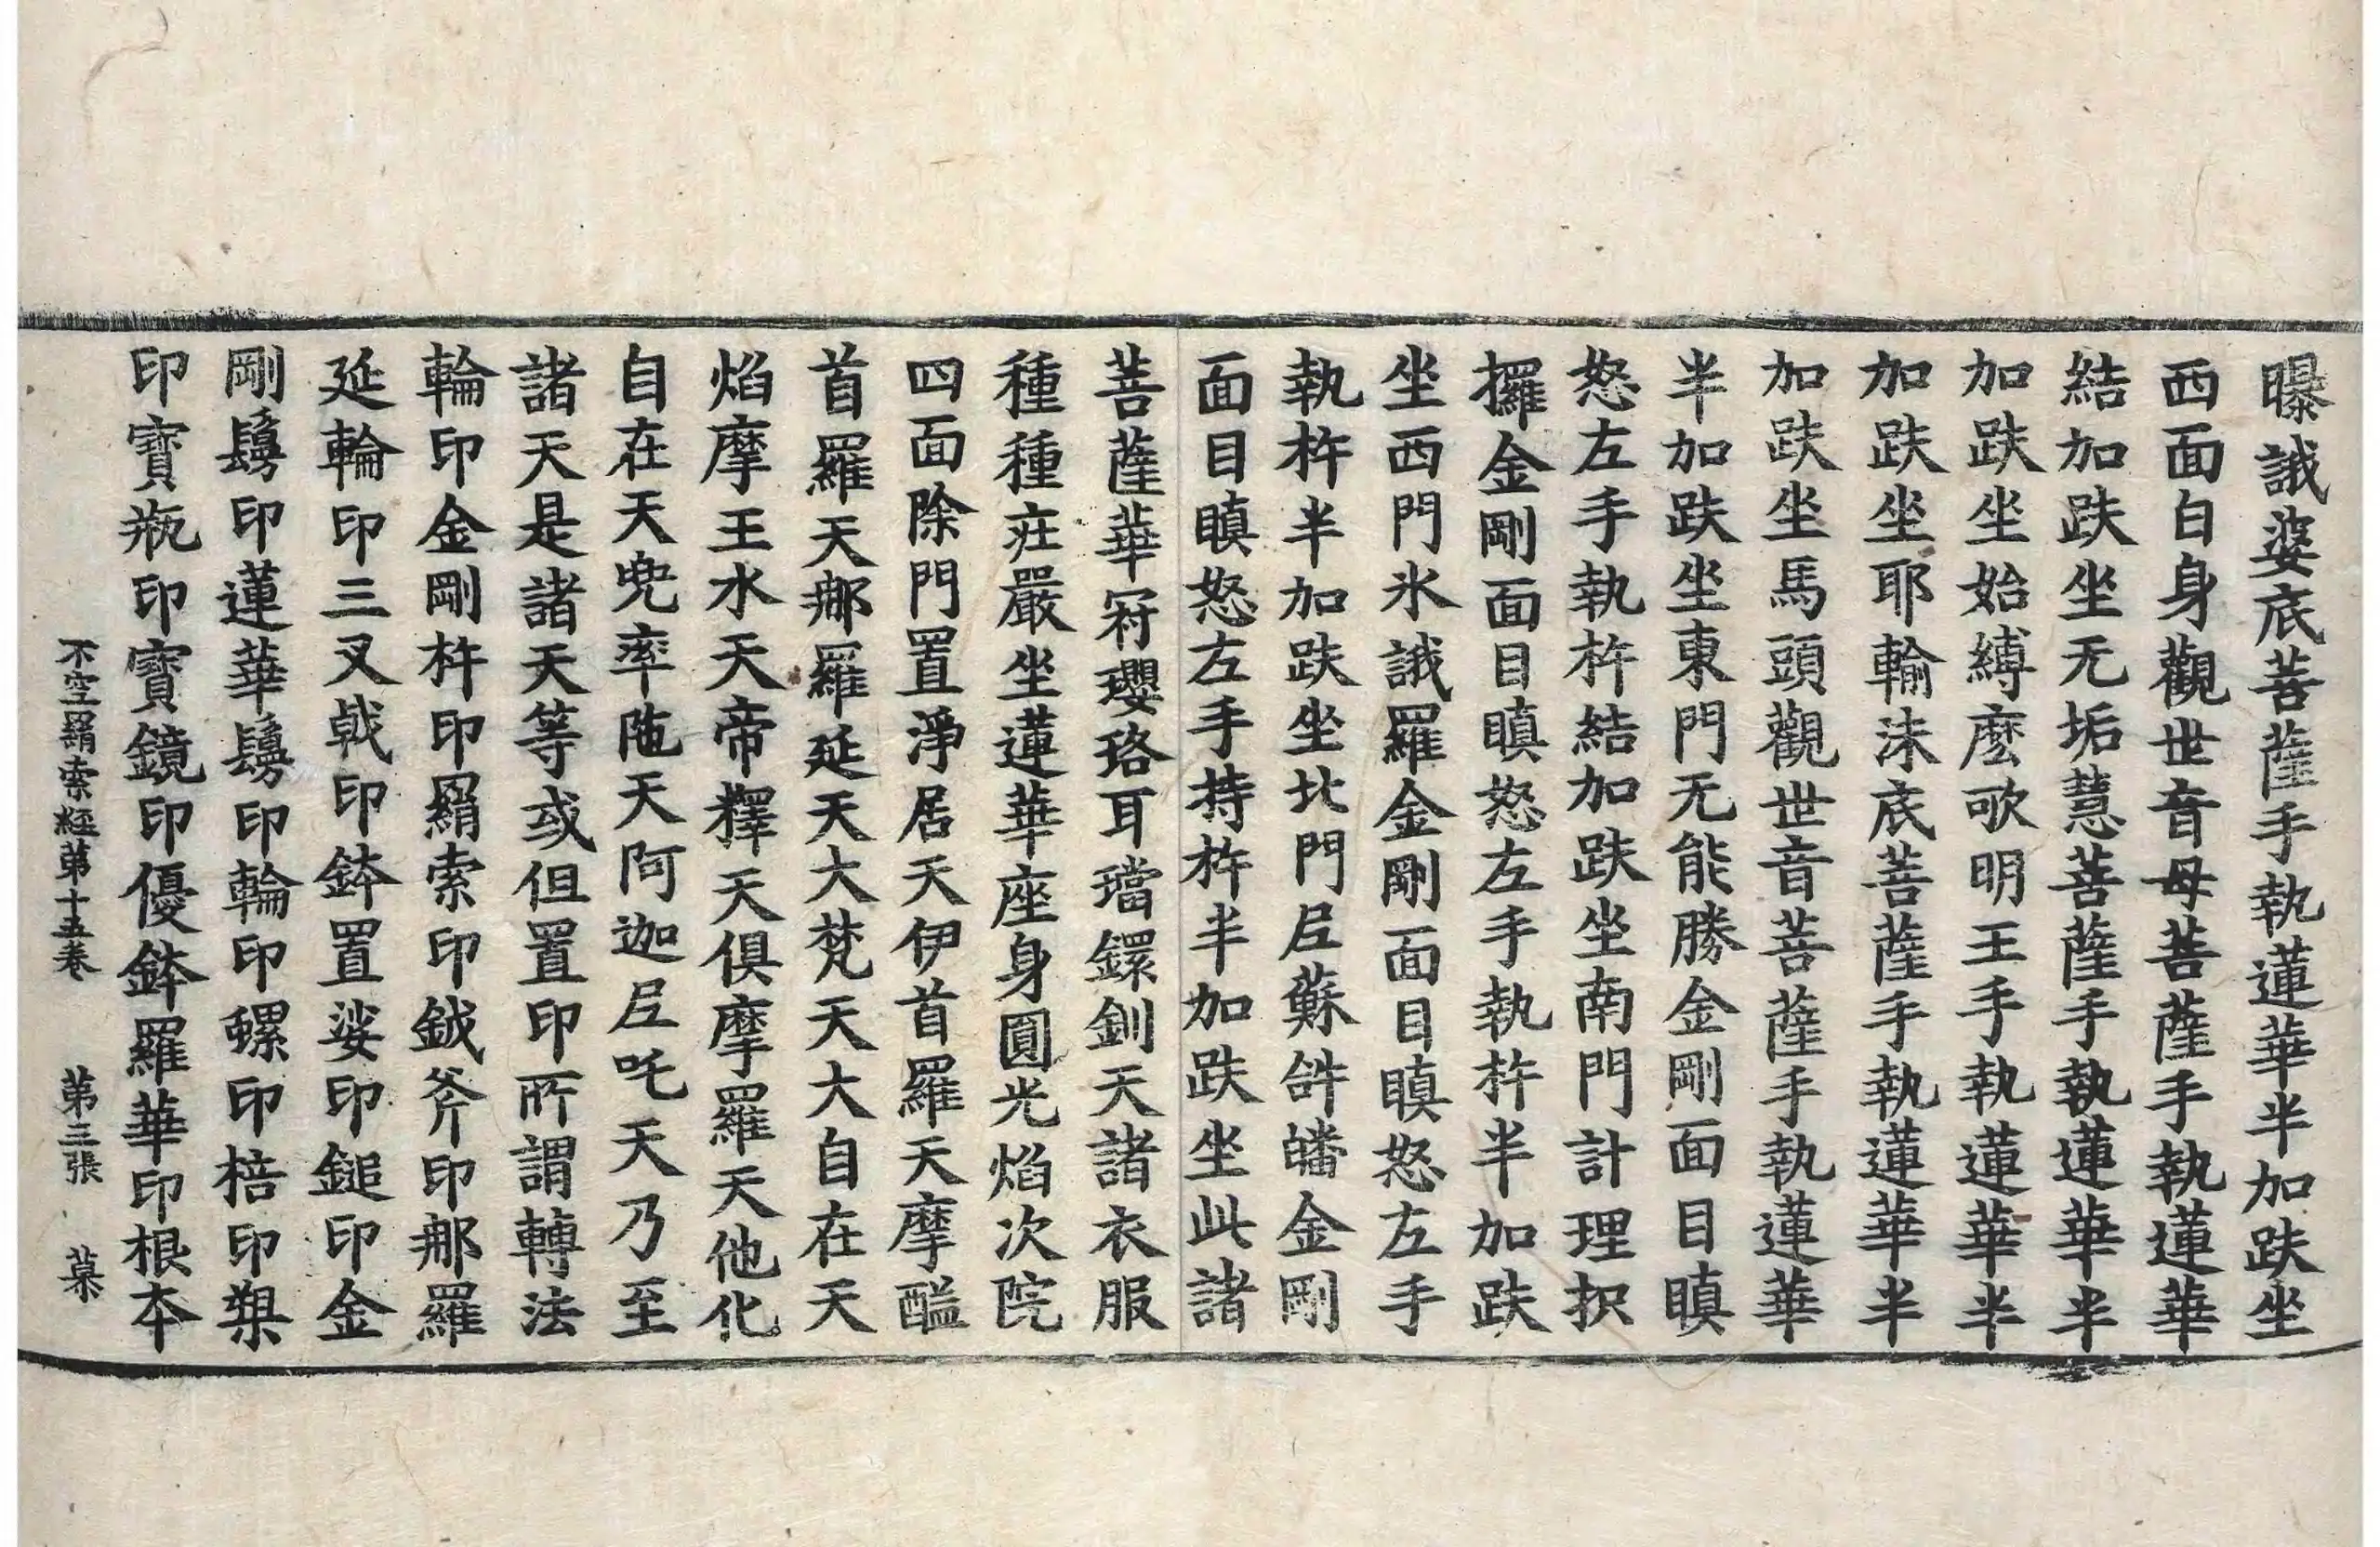 曝誐婆底菩薩手執蓮華半加趺坐
西面白身觀世音母菩薩手執蓮華
結加趺坐无垢慧菩薩手執蓮華半
加趺坐始縛麽歌明王手執蓮華半
加趺坐耶輸沫底菩薩手執蓮華半
加趺坐馬頭觀世音菩薩手執蓮華
半加趺坐東門无能勝金剛面目瞋
怒左手執杵結加趺坐南門計理抧
攞金剛面目瞋怒左手執杵半加趺
坐西門氷誐羅金剛面目瞋怒左手
執杵半加趺坐北門𡰱蘇皤金剛
面目瞋怒左手持杵半加趺坐此諸
菩薩華冠瓔珞耳璫鐶釧天諸衣服
種種莊嚴坐蓮華座身圓光焰次院
四面除門置淨居天伊首羅天摩醯
首羅天那羅延天大梵天大自在天
焰摩王水天帝釋天俱摩羅天他化
自在天兜率陁天阿迦𡰱吒天乃至
諸天是諸天等或但置印所謂轉法
輪印金剛杵印羂索印鉞斧印那羅
延輪印三叉戟印鉢置娑印鎚印金
剛鬘印蓮華鬘印輪印螺印棓印槊
印寶瓶印寶鏡印優鉢羅華印根本
不空羂索經第十五卷 第三張 業